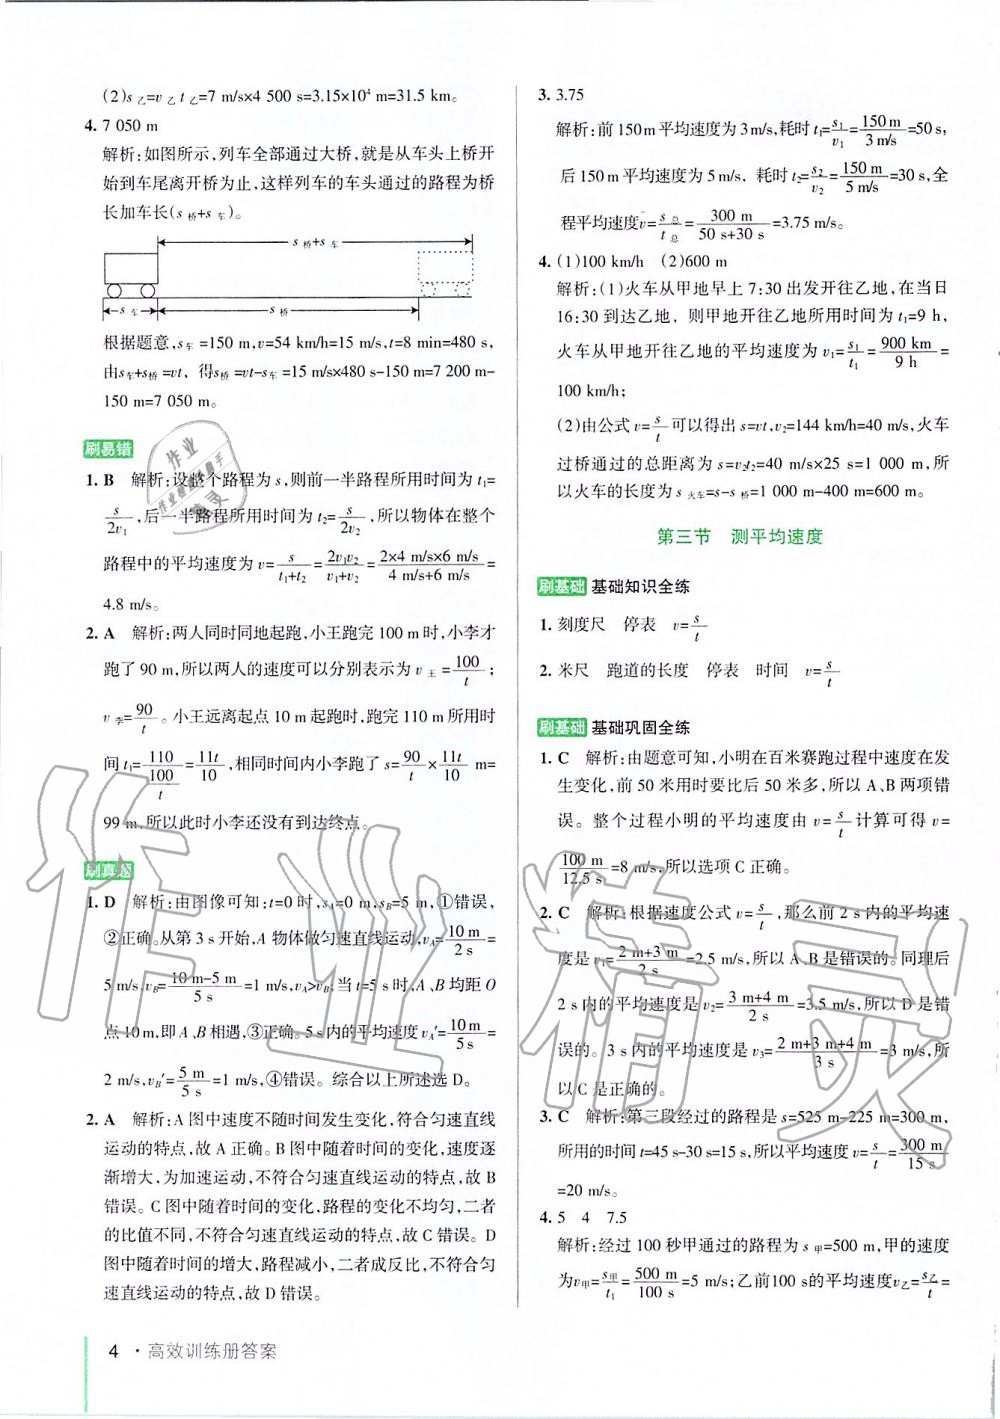 (2)s乙=v乙t乙=7 m/s×4 500 s=3.15×10⁴ m=31.5 km。
4. 7 050 m
解析:如图所示,列车全部通过大桥,就是从车头上桥开
始到车尾离开桥为止,这样列车的车头通过的路程为桥
长加车长(s桥+s车)。
s桥+s车
s车 s桥
根据题意,s车=150 m,v=54 km/h=15 m/s,t=8 min=480 s,
由s车+s桥=vt, 得s桥=vt-s车=15 m/s×480 s-150 m=7 200 m-
150 m=7 050 m。
刷易错
1. B 解析:设整个路程为 s,则前一半路程所用时间为 t₁=
s/2v₁,后一半路程所用时间为 t₂=s/2v₂,所以物体在整个
路程中的平均速度为 v=s/(t₁+t₂)=2v₁v₂/(v₁+v₂)=(2×4 m/s×6 m/s)/(4 m/s+6 m/s)=
4.8 m/s。
2. A 解析:两人同时同地起跑,小王跑完 100 m 时,小李才
跑了 90 m,所以两人的速度可以分别表示为 v王=100/t;
v李=90/t。小王远离起点 10 m 起跑时,跑完 110 m 所用时
间 t₁=110/(100/t)=11t/10,相同时间内小李跑了 s=90/t×11t/10 m=
99 m,所以此时小李还没有到达终点。
刷真题
1. D 解析:由图像可知:t=0 时,sA=0 m,sB=5 m,①错误,
②正确。从第 3 s 开始,A 物体做匀速直线运动,vA=10 m/2 s=
5 m/s,vB=(10 m-5 m)/5 s=1 m/s,vA>vB,当 t=5 s 时,A、B 均距 O
点 10 m,即 A、B 相遇,③正确。5 s 内的平均速度 vA′=10 m/5 s=
2 m/s,vB′=5 m/5 s=1 m/s,④错误。综合以上所述选 D。
2. A 解析:A 图中速度不随时间发生变化,符合匀速直线
运动的特点,故 A 正确。B 图中随着时间的变化,速度逐
渐增大,为加速运动,不符合匀速直线运动的特点,故 B
错误。C 图中随着时间的变化,路程的变化不均匀,二者
的比值不同,不符合匀速直线运动的特点,故 C 错误。D
图中随着时间的增大,路程减小,二者成反比,不符合匀
速直线运动的特点,故 D 错误。
4 ·高效训练册答案
3. 3.75
解析:前 150 m 平均速度为 3 m/s,耗时 t₁=s₁/v₁=150 m/3 m/s=50 s,
后 150 m 平均速度为 5 m/s, 耗时 t₂=s₂/v₂=150 m/5 m/s=30 s,全
程平均速度 v̄=s总/t总=300 m/(50 s+30 s)=3.75 m/s。
4. (1)100 km/h (2)600 m
解析:(1)火车从甲地早上 7:30 出发开往乙地,在当日
16:30 到达乙地, 则甲地开往乙地所用时间为 t₁=9 h,
火车从甲地开往乙地的平均速度为 v₁=s₁/t₁=900 km/9 h=
100 km/h;
(2)由公式 v=s/t 可以得出 s=vt,v₂=144 km/h=40 m/s,火车
过桥通过的总距离为 s=v₂t₂=40 m/s×25 s=1 000 m,所
以火车的长度为 s火车=s-s桥=1 000 m-400 m=600 m。
第三节 测平均速度
刷基础 基础知识全练
1. 刻度尺 停表 v=s/t
2. 米尺 跑道的长度 停表 时间 v=s/t
刷基础 基础巩固全练
1. C 解析:由题意可知,小明在百米赛跑过程中速度在发
生变化,前 50 米用时要比后 50 米多,所以 A、B 两项错
误。整个过程小明的平均速度由 v=s/t 计算可得 v=
100 m/12.5 s=8 m/s,所以选项 C 正确。
2. C 解析:根据速度公式 v=s/t,那么前 2 s 内的平均速
度是 v₁=(2 m+3 m)/2 s=2.5 m/s,所以 A、B 是错误的。同理后
2 s 内的平均速度是 v₂=(3 m+4 m)/2 s=3.5 m/s,所以 D 是错
误的。3 s 内的平均速度是 v₃=(2 m+3 m+4 m)/3 s=3 m/s,所
以 C 是正确的。
3. C 解析:第三段经过的路程是 s=525 m-225 m=300 m,
所用的时间 t=45 s-30 s=15 s,所以平均速度 v=s/t=300 m/15 s
=20 m/s。
4. 5 4 7.5
解析:经过 100 秒甲通过的路程为 s甲=500 m,甲的速度
为 v甲=s甲/t₁=500 m/100 s=5 m/s;乙前100s的平均速度v乙=s乙/t=
作业精灵